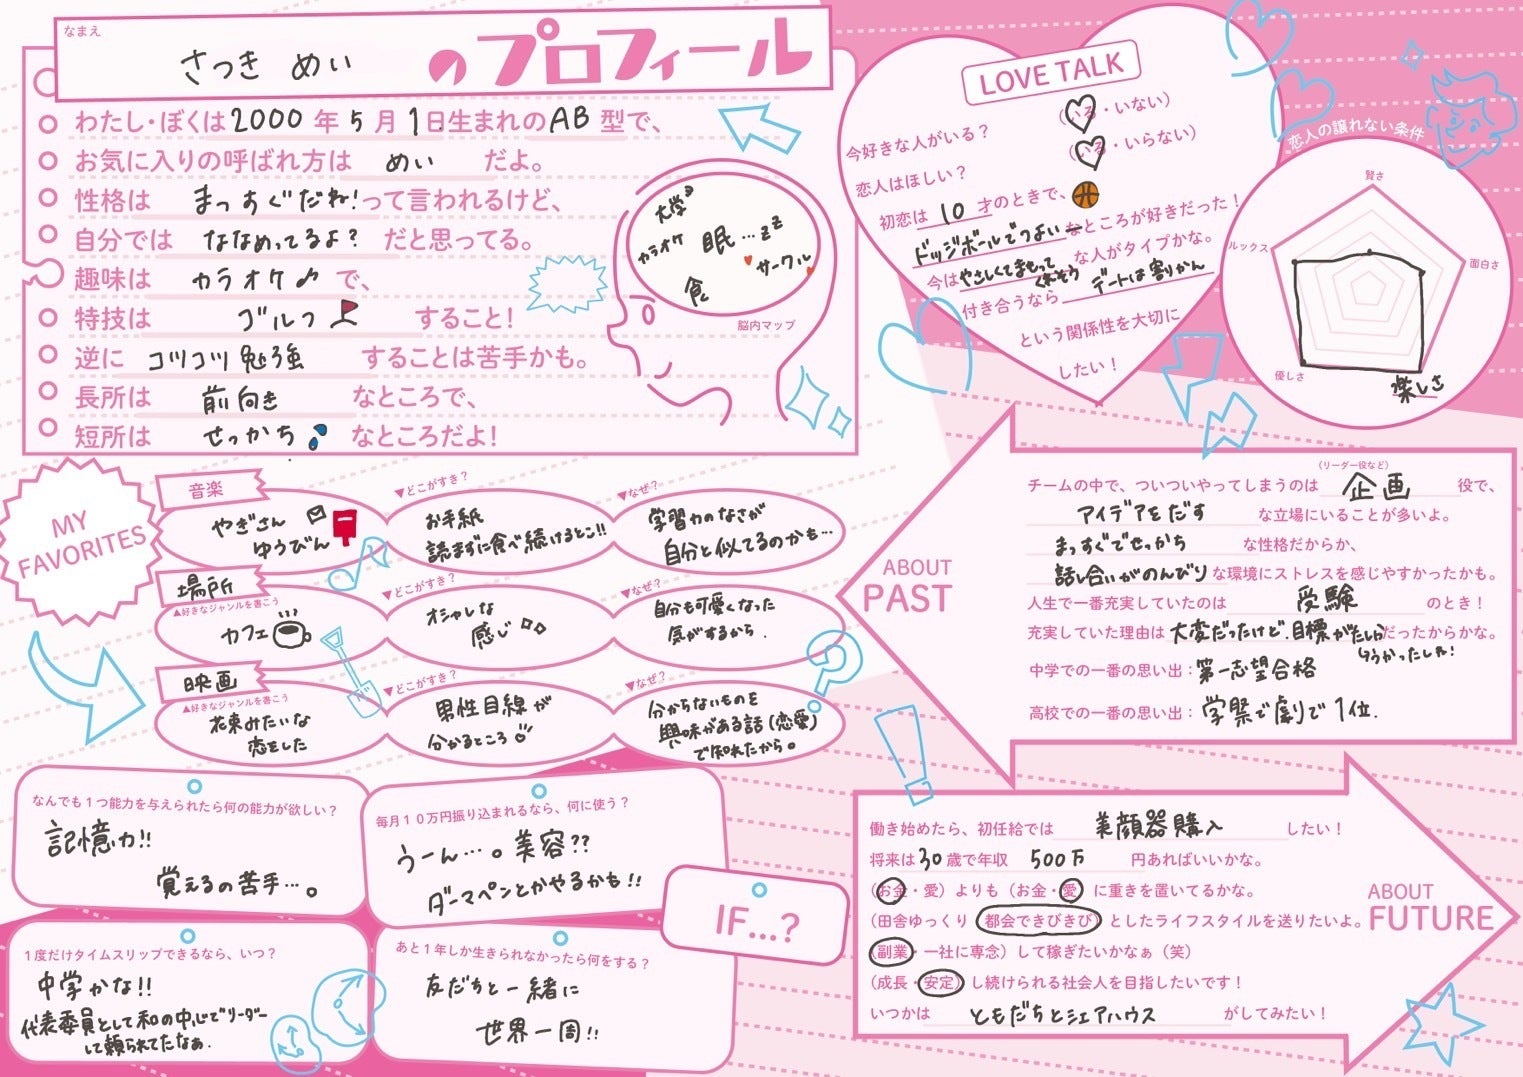 なまえ
さつき めい のプロフィール
わたし・ぼくは2000年5月1日生まれのAB型で、
お気に入りの呼ばれ方は めい だよ。
性格は まっすぐだね!って言われるけど、
自分では ななめってるよ? だと思ってる。
趣味は カラオケ♪ で、
特技は ゴルフ すること!
逆に コツコツ勉強 することは苦手かも。
長所は 前向き なところで、
短所は せっかち なところだよ!
大学
カラオケ
眠…zz
サークル
食
脳内マップ
LOVE TALK
今好きな人がいる? (いる・いない)
恋人はほしい? (いる・いらない)
初恋は 10 才のときで、
ドッジボールでつよい なところが好きだった!
今は やさしくてまもってくれそう な人がタイプかな。
付き合うなら デートは割りかん
という関係性を大切に
したい!
恋人の譲れない条件
賢さ
ルックス
面白さ
優しさ
楽しさ
MY
FAVORITES
音楽
▼どこがすき?
▼なぜ?
やぎさん
ゆうびん
お手紙
読まずに食べ続けるとこ!!
学習力のなさが
自分と似てるのかも…
場所
▲好きなジャンルを書こう
▼どこがすき?
▼なぜ?
カフェ
オシャレな
感じ
自分も可愛くなった
気がするから.
映画
▲好きなジャンルを書こう
▼どこがすき?
▼なぜ?
花束みたいな
恋をした
男性目線が
分かるところ
分からないものを
興味がある話(恋愛)
で知れたから。
ABOUT
PAST
(リーダー役など)
チームの中で、ついついやってしまうのは 企画 役で、
アイデアをだす な立場にいることが多いよ。
まっすぐでせっかち な性格だからか、
話し合いがのんびり な環境にストレスを感じやすかったかも。
人生で一番充実していたのは 受験 のとき!
充実していた理由は 大変だったけど、目標がたしか だったからかな。
うかったしね!
中学での一番の思い出:第一志望合格
高校での一番の思い出:学祭で劇で1位.
なんでも1つ能力を与えられたら何の能力が欲しい?
記憶力!!
覚えるの苦手…。
毎月10万円振り込まれるなら、何に使う?
うーん…。美容??
ダーマペンとかやるかも!!
IF...?
1度だけタイムスリップできるなら、いつ?
中学かな!!
代表委員として和の中心でリーダー
して頼られてたなぁ.
あと1年しか生きられなかったら何をする?
友だちと一緒に
世界一周!!
働き始めたら、初任給では 美顔器購入 したい!
将来は30歳で年収 500万 円あればいいかな。
(お金・愛)よりも(お金・愛)に重きを置いてるかな。
(田舎ゆっくり 都会できびきび)としたライフスタイルを送りたいよ。
(副業・一社に専念)して稼ぎたいかなぁ(笑)
(成長・安定)し続けられる社会人を目指したいです!
いつかは ともだちとシェアハウス がしてみたい!
ABOUT
FUTURE